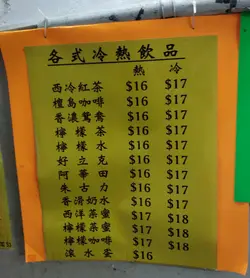 各式冷熱飲品
熱 冷
西冷紅茶 $16 $17
檀島咖啡 $16 $17
香濃鴛鴦 $16 $17
檸檬茶 $16 $17
檸檬水 $16 $17
好立克 $16 $17
阿華田 $16 $17
朱古力 $16 $17
香滑奶水 $16 $17
西洋茶蜜 $17 $18
檸檬茶蜜 $17 $18
檸檬咖啡 $17 $18
滾水蛋 $16